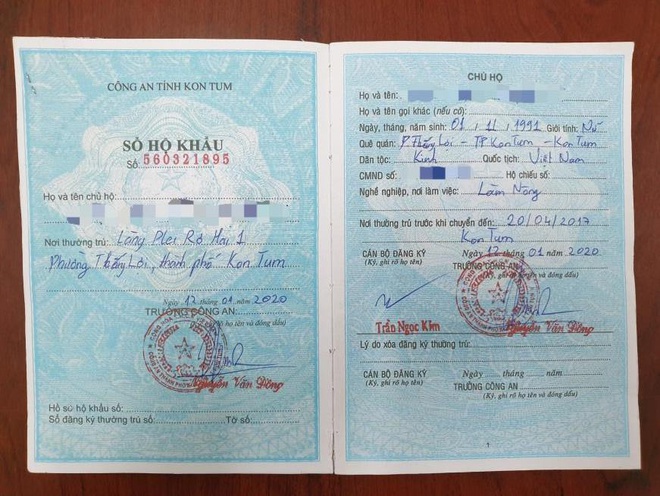 CÔNG AN TỈNH KON TUM
SỔ HỘ KHẨU
Số: 560321895
Họ và tên chủ hộ:
Nơi thường trú: Làng Plei Rơ Hai 1
Phường Thắng Lợi, thành phố Kon Tum
Ngày 12 tháng 01 năm 2020
TRƯỞNG CÔNG AN:
(Ký, ghi rõ họ tên và đóng dấu)
Nguyễn Văn Đồng
Hồ sơ hộ khẩu số:
Số đăng ký thường trú số: Tờ số:
CHỦ HỘ
Họ và tên:
Họ và tên gọi khác (nếu có):
Ngày, tháng, năm sinh: 01 / 11 / 1991 Giới tính: Nữ
Quê quán: P. Thắng Lợi - TP Kon Tum - Kon Tum
Dân tộc: Kinh Quốc tịch: Việt Nam
CMND số: Hộ chiếu số:
Nghề nghiệp, nơi làm việc: Làm Nông
Nơi thường trú trước khi chuyển đến: 20/04/2017
Kon Tum
Ngày 12 tháng 01 năm 2020
CÁN BỘ ĐĂNG KÝ TRƯỞNG CÔNG AN:
(Ký, ghi rõ họ tên) (Ký, ghi rõ họ tên và đóng dấu)
Trần Ngọc Kim Nguyễn Văn Đồng
Lý do xóa đăng ký thường trú:
Ngày tháng năm
CÁN BỘ ĐĂNG KÝ TRƯỞNG CÔNG AN:
(Ký, ghi rõ họ tên) (Ký, ghi rõ họ tên và đóng dấu)
1